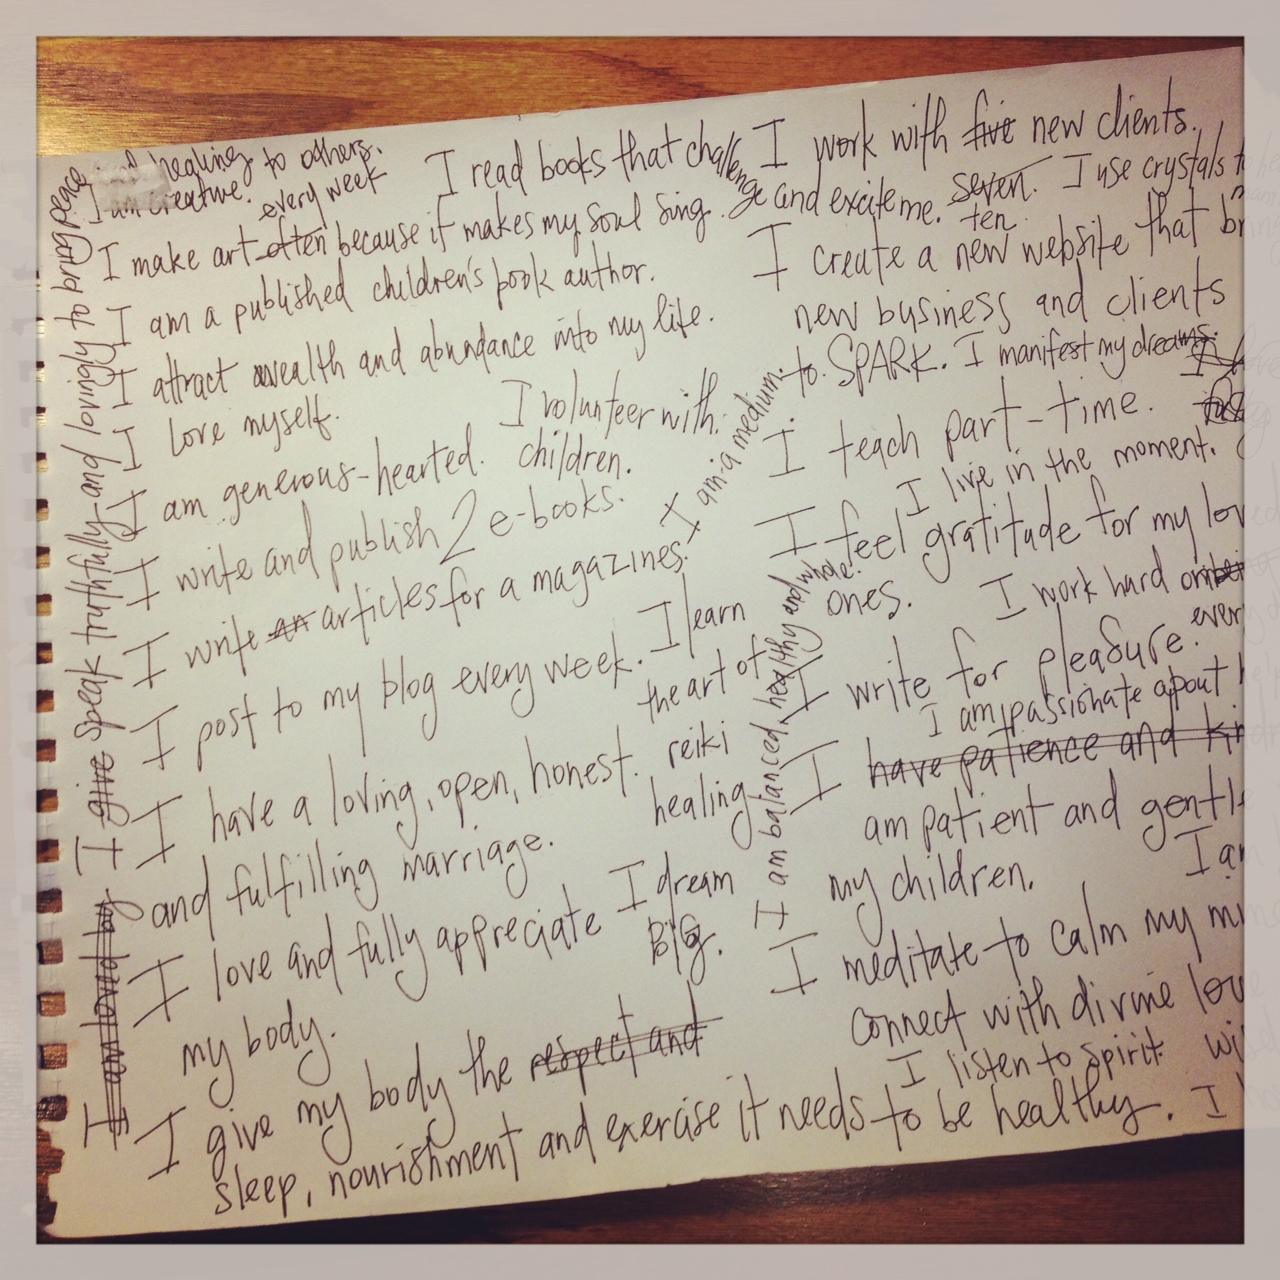 I speak truthfully and lovingly to bring peace
and healing to others.
I am creative.
every week
I make art often because it makes my soul sing.
I am a published children's book author.
I attract wealth and abundance into my life.
I love myself.
I volunteer with
children.
I am generous-hearted.
I write and publish 2 e-books.
I write an articles for a magazines.
I am a medium.
I post to my blog every week.
I learn
the art of
reiki
healing.
I have a loving, open, honest.
and fulfilling marriage.
I love and fully appreciate
my body.
I dream
BIG.
I give my body the respect and
sleep, nourishment and exercise it needs to be healthy.
I am loved by
I give
I read books that challenge and excite me.
I work with five new clients.
seven
ten
I use crystals to
I create a new website that
new business and clients
to SPARK. I manifest my dreams.
I teach part-time.
I live in the moment.
I feel gratitude for my
ones.
I work hard
every
I am balanced, healthy and whole.
I write for pleasure.
I am passionate about
I have patience and
am patient and
my children.
I am
I meditate to calm my
connect with divine
I listen to spirit
I